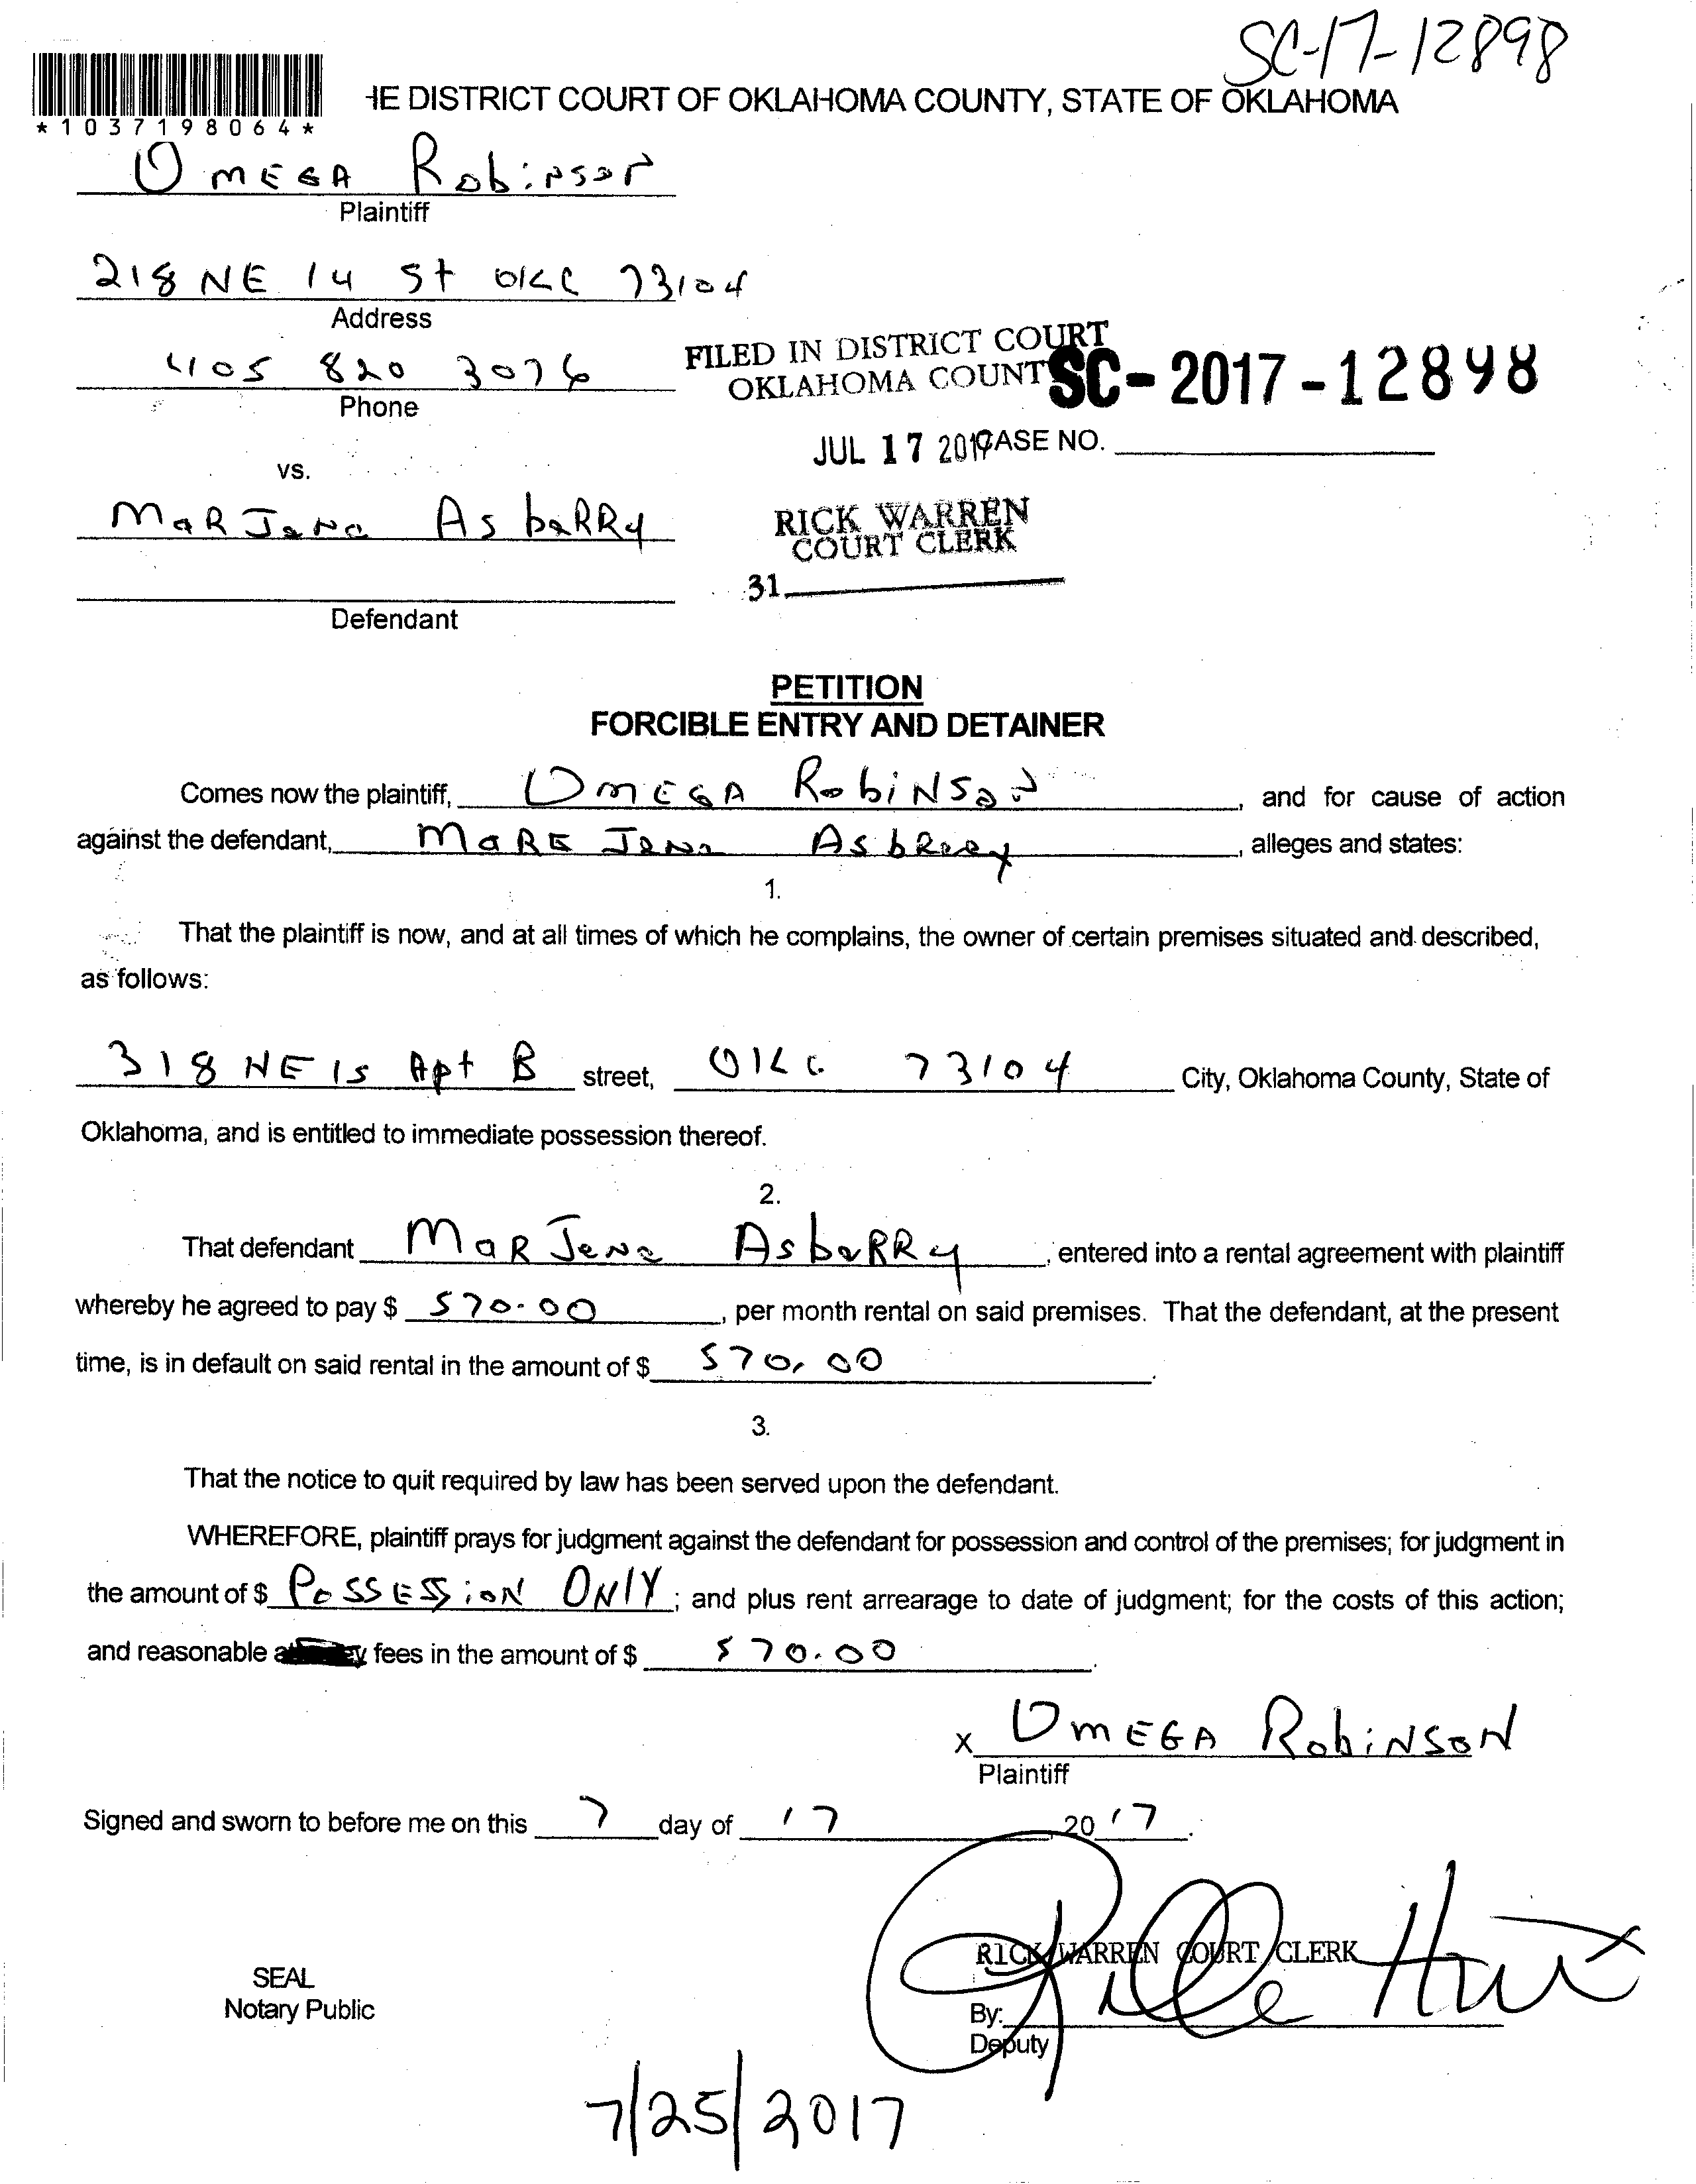 SC-17-12898
HE DISTRICT COURT OF OKLAHOMA COUNTY, STATE OF OKLAHOMA
*1037198064*
OMEGA Robinson
Plaintiff
218 NE 14 St OKC 73104
Address
FILED IN DISTRICT COURT
OKLAHOMA COUNT SC-2017-12898
405 820 3076
Phone
JUL 17 2017 CASE NO.
vs.
MaRJena AsbaRRy
RICK WARREN
COURT CLERK
31
Defendant
PETITION
FORCIBLE ENTRY AND DETAINER
Comes now the plaintiff, OMEGA RobiNSoN, and for cause of action
against the defendant, alleges and states:
1.
That the plaintiff is now, and at all times of which he complains, the owner of certain premises situated and described,
as follows:
318 NE 15 Apt B street, OKC 73104 City, Oklahoma County, State of
Oklahoma, and is entitled to immediate possession thereof.
2.
That defendant MaRJena AsbaRRy, entered into a rental agreement with plaintiff
whereby he agreed to pay $ 570.00, per month rental on said premises. That the defendant, at the present
time, is in default on said rental in the amount of $ 570.00.
3.
That the notice to quit required by law has been served upon the defendant.
WHEREFORE, plaintiff prays for judgment against the defendant for possession and control of the premises; for judgment in
the amount of $ PoSSESSioN ONlY; and plus rent arrearage to date of judgment; for the costs of this action;
and reasonable fees in the amount of $ 570.00.
x OMEGA RobiNSoN
Plaintiff
Signed and sworn to before me on this 7 day of 17, 2017.
RICK WARREN COURT CLERK
SEAL
Notary Public
By:
Deputy
7/25/2017